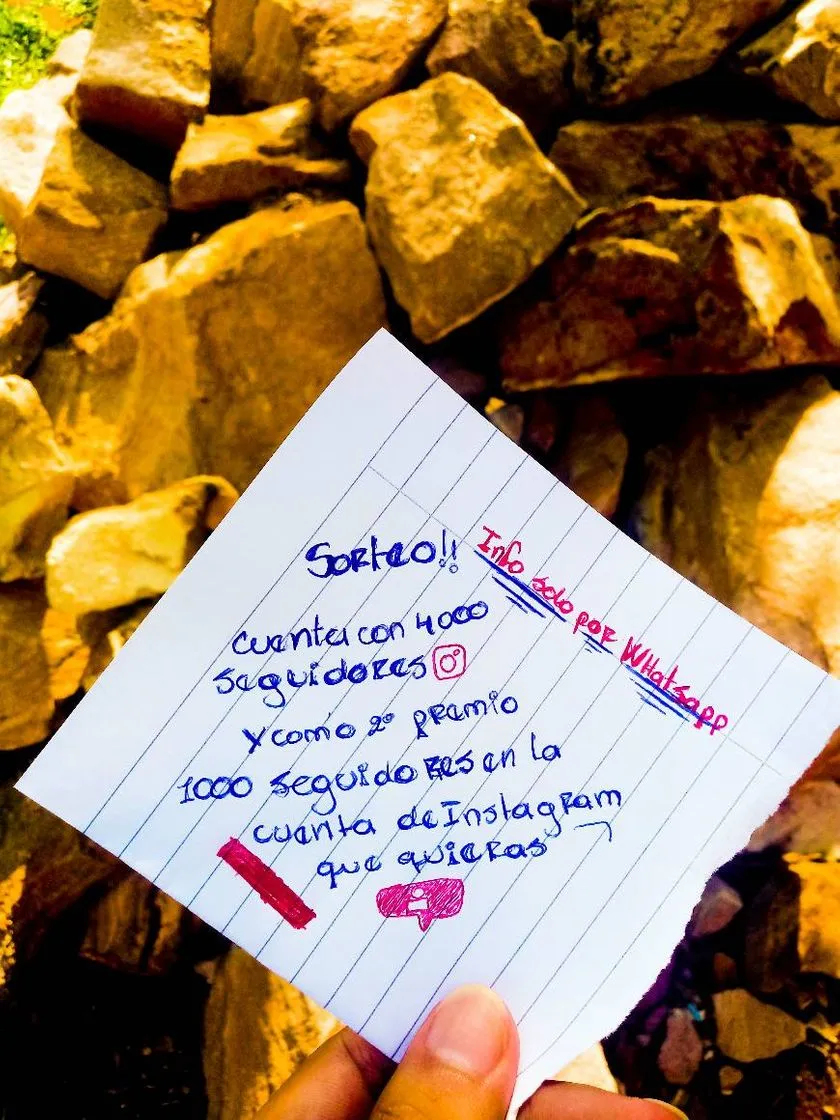 Sorteo!!
Info solo por WHatsapp
cuenta con 4000
seguidores
y como 2º premio
1000 seguidores en la
cuenta de Instagram
que quieras